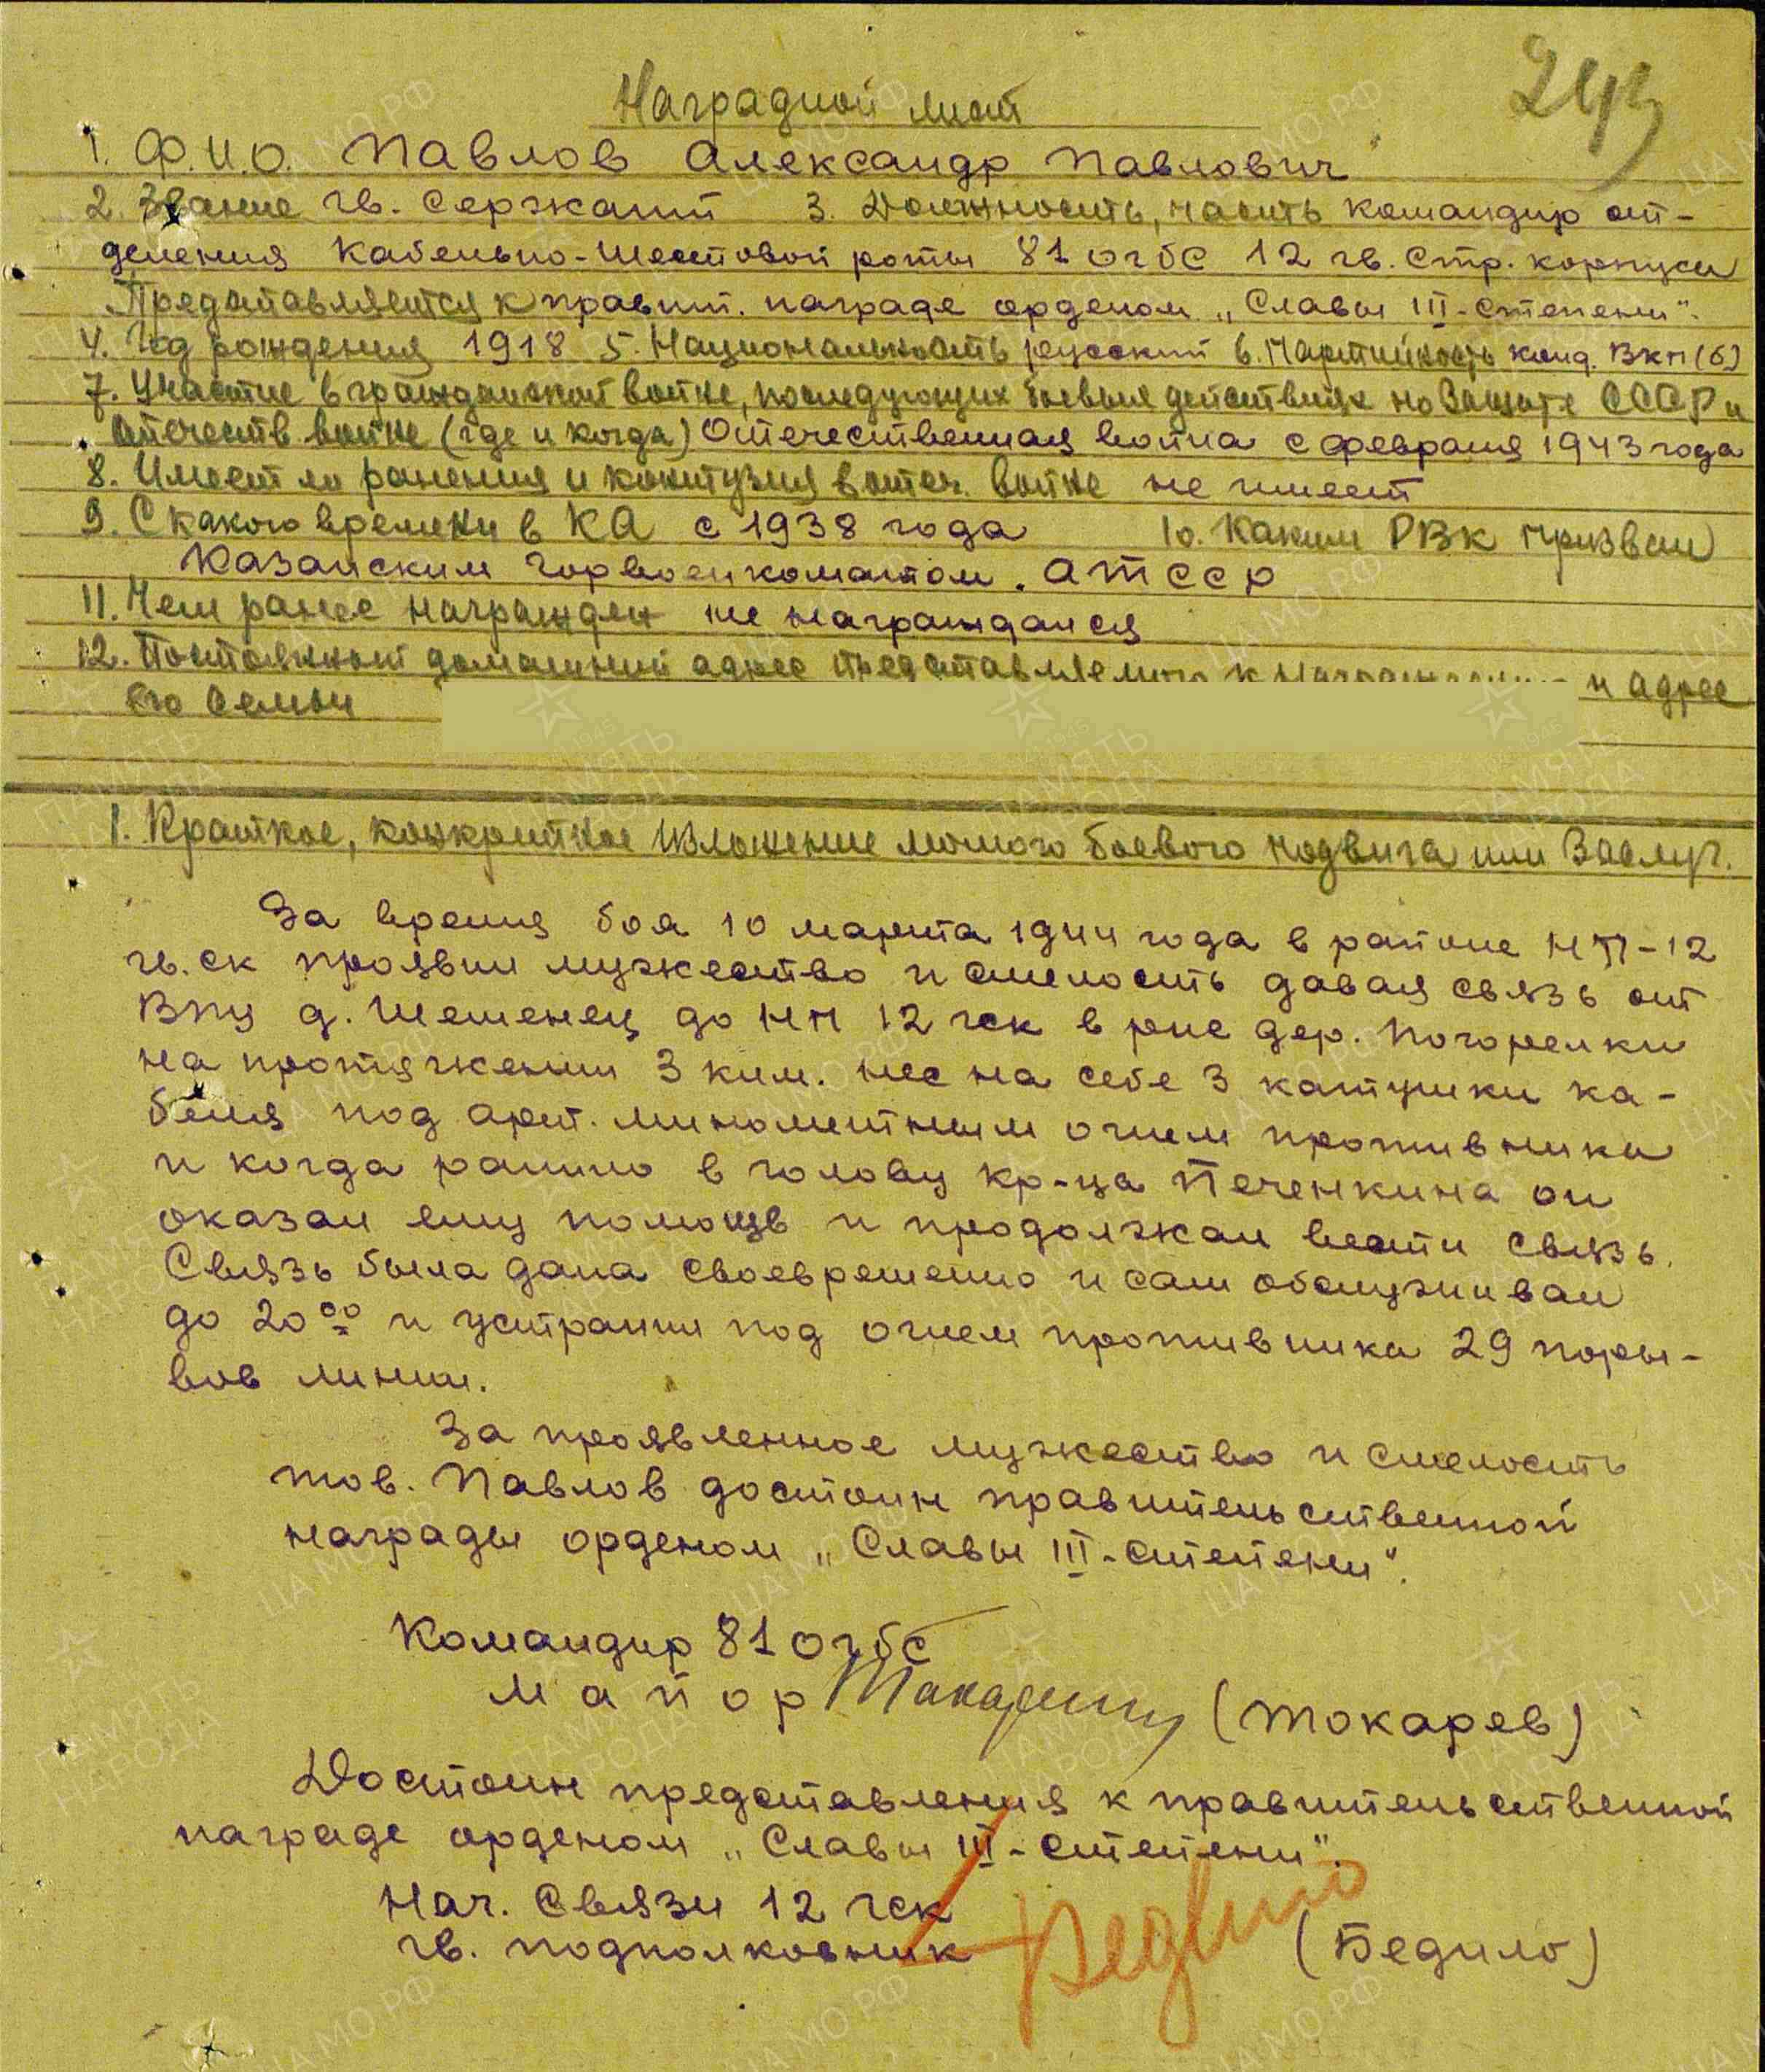 243
Наградной лист
1. Ф.И.О. Павлов Александр Павлович
2. Звание гв. Сержант 3. Должность, часть командир от-
деления Кабельно-Шестовой роты 81 огбс 12 гв. Стр. корпуса
Представляется к правит. награде орденом „Славы III-степени".
4. Год рождения 1918 5. Национальность русский 6. Партийность канд. ВКП(б)
7. Участие в гражданской войне, последующих боевых действиях по защите СССР и
отечеств. войне (где и когда) Отечественная война с февраля 1943 года
8. Имеет ли ранения и контузия в отеч. войне не имеет
9. С какого времени в КА с 1938 года 10. Каким РВК призван
Казанским Горвоенкоматом. АТССР
11. Чем ранее награжден не награждался
12. Постоянный домашний адрес представляемого к награждению и адрес
его семьи
1. Краткое, конкретное изложение личного боевого подвига или заслуг.
За время боя 10 марта 1944 года в районе НП-12
гв. ск проявил мужество и смелость давая связь от
ВПУ д. Шешенец до НП 12 гск в р-не дер. Погорелки
на протяжении 3 клм. нес на себе 3 катушки ка-
беля под арт. минометным огнем противника
и когда ранило в голову кр-ца Печенкина он
оказал ему помощь и продолжал вести связь.
Связь была дана своевременно и сам обслуживал
до 20 00 и устранил под огнем противника 29 поры-
вов линии.
За проявленное мужество и смелость
тов. Павлов достоин правительственной
награды орденом „Славы III-степени".
Командир 81 огбс
майор (Токарев)
Достоин представления к правительственной
награде орденом „Славы III-степени".
Нач. Связи 12 гск
гв. подполковник (Бедило)
ПАМЯТЬ НАРОДА
ЦА МО РФ